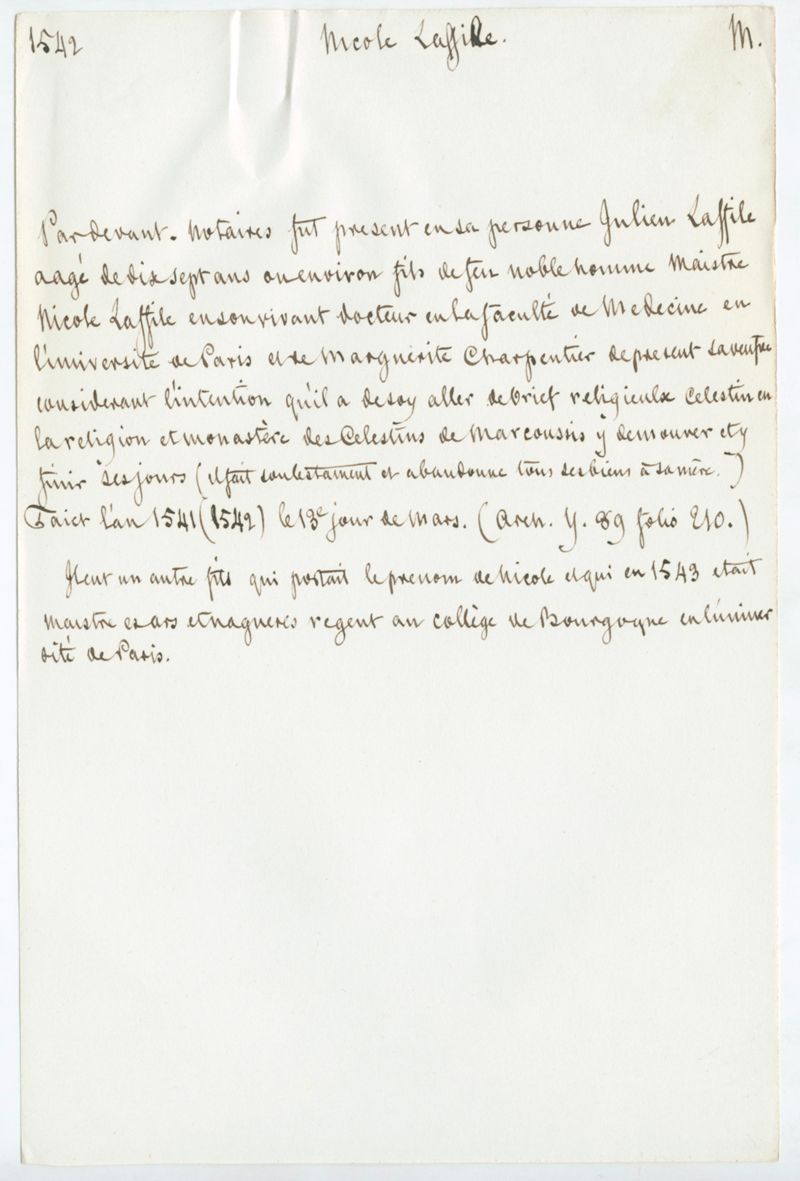 1542 Nicole Laffile. M.
Pardevant. Notaires fut present en sa personne Julien Laffile
aagé de dix sept ans ou environ fils de feu noble homme Maistre
Nicole Laffile en son vivant docteur en la faculté de Medecine en
l'université de Paris et de Marguerite Charpentier de present sa veufve
considerant l'intention qu'il a de soy aller de brief religieulx Celestin en
la religion et monastère des Celestins de Marcoussis y demourer et y
finir ses jours (il fait son testament et abandonne tous ses biens à sa mère.)
Faict l'an 1541 (1542) le 13e jour de Mars. (Arch. Y. 89 folio 210.)
Il eut un autre fils qui portait le prenom de Nicole et qui en 1543 etait
maistre es ars et nagueres regent au collège de Bourgogne en l'univer
sité de Paris.